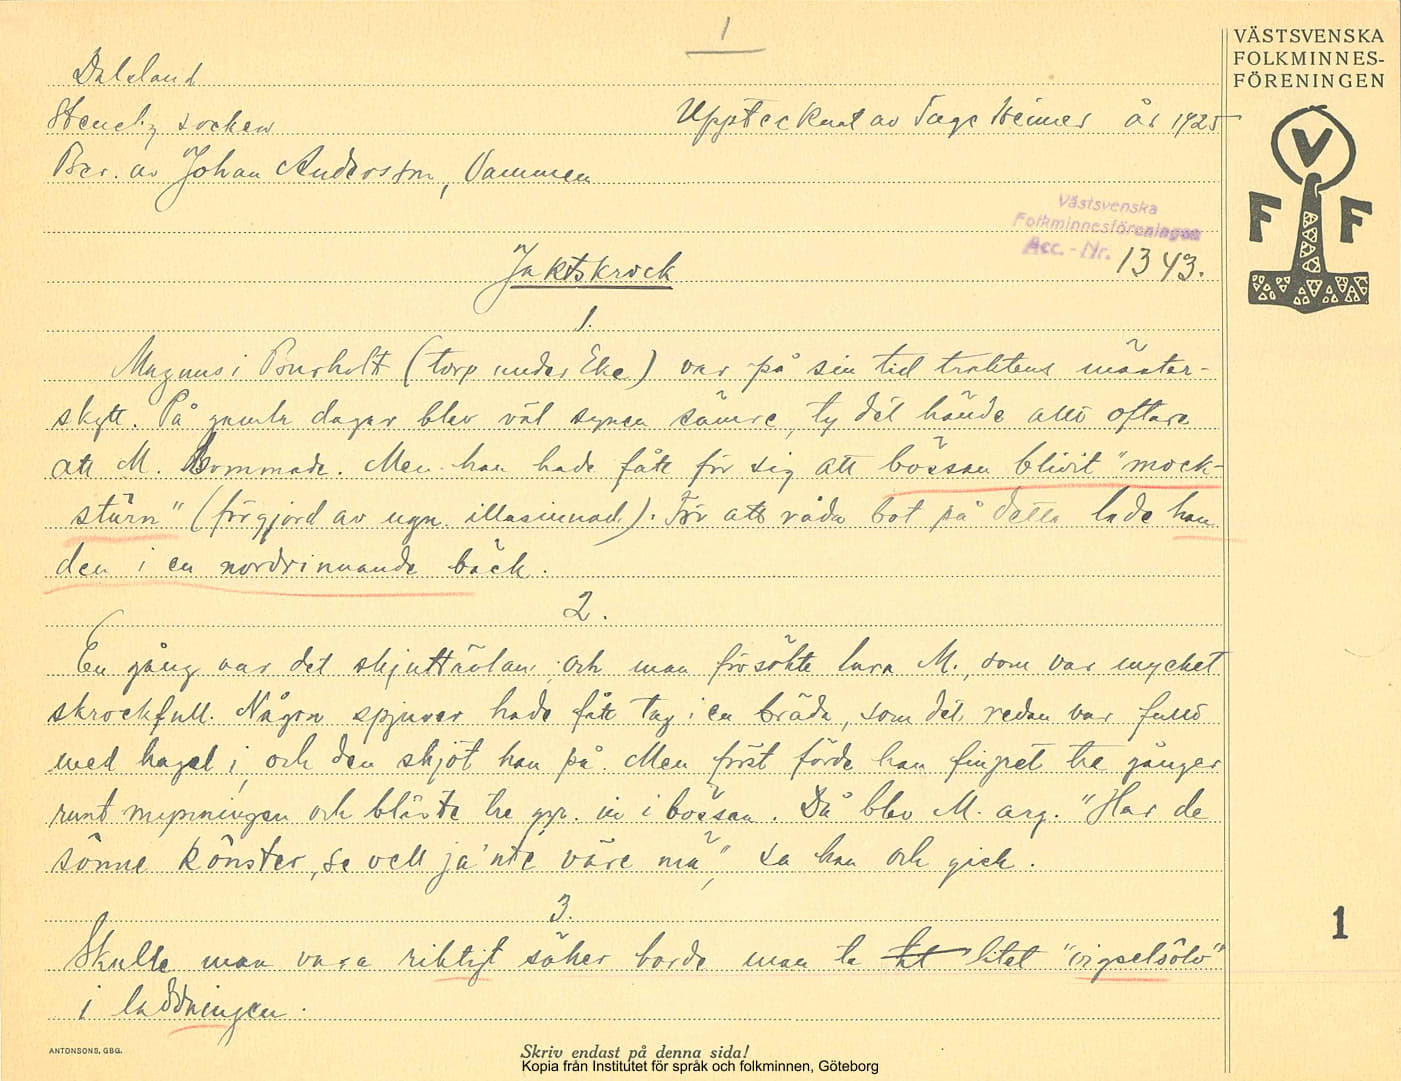 1
VÄSTSVENSKA
FOLKMINNES-
FÖRENINGEN
Dalsland
Steneby socken
Upptecknat av Tage Heimer år 1925
Ber. av Johan Andersson, Vammen
V
F F
Västsvenska
Folkminnesföreningen
Acc.-Nr. 1343.
Jaktskrock
1.
Magnus i Burholt (torp under Eke) var på sin tid traktens mäster-
skytt. På gamla dagar blev väl synen sämre, ty det hände allt oftare
att M. bommade. Men han hade fått för sig att bössan blivit "mock-
stürn" (förgjord av ngn illasinnad). För att råda bot på detta lade han
den i en nordrinnande bäck.
2.
En gång var det skjuttävlan, och man försökte lura M., som var mycket
skrockfull. Någon spjuver hade fått tag i en bräda, som det redan var fullt
med hagel i, och den skjöt han på. Men först förde han fingret tre gånger
runt mynningen och blåste tre ggr. in i bössan. Då blev M. arg. "Har de
sönne könster, se vell ja' nte väre mä", sa han och gick.
3.
Skulle man vara riktigt säker borde man ta litet "vigselsölv"
i laddningen.
1
ANTONSONS, GBG.
Skriv endast på denna sida!
Kopia från Institutet för språk och folkminnen, Göteborg